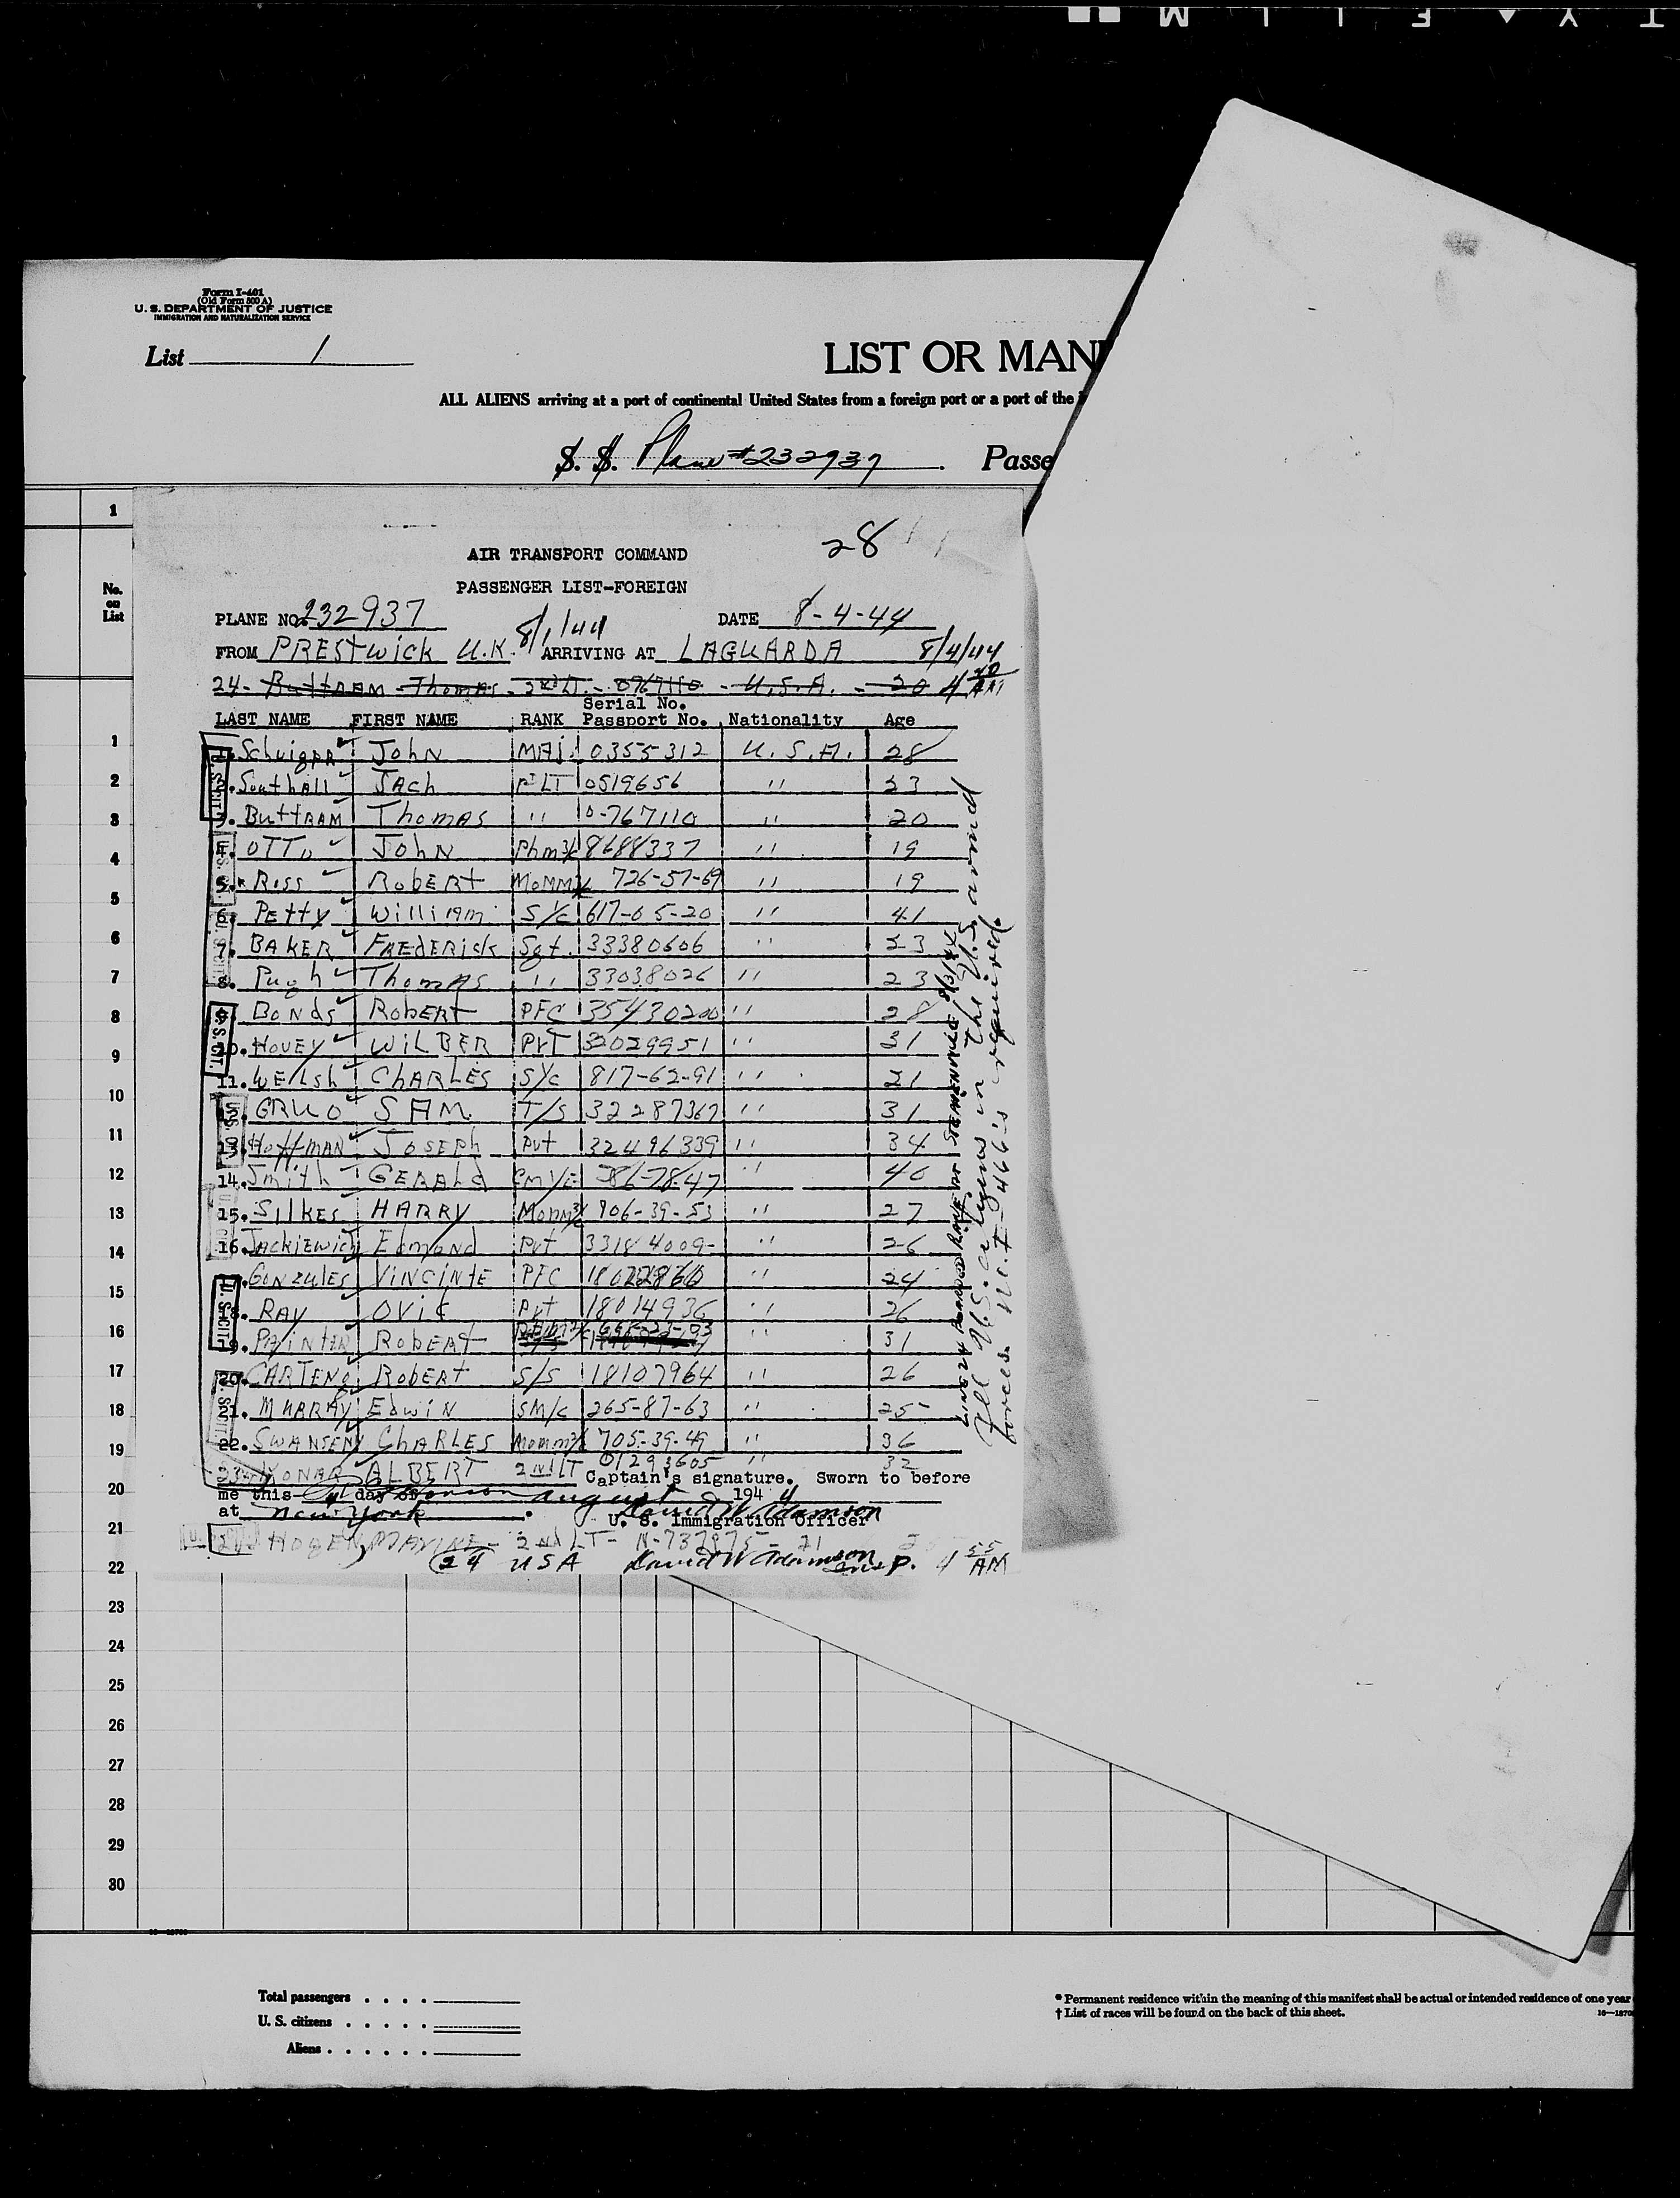 Form I-401
(Old Form 500 A)
U. S. DEPARTMENT OF JUSTICE
IMMIGRATION AND NATURALIZATION SERVICE
List 1
LIST OR MAN
ALL ALIENS arriving at a port of continental United States from a foreign port or a port of the
S. S. Plane #232937 Passe
1
No.
on
List
28
AIR TRANSPORT COMMAND
PASSENGER LIST-FOREIGN
PLANE NO 232937 DATE 8-4-44
FROM PREStwick U.K. 8/1/44 ARRIVING AT LAGUARDA 8/4/44
24- ButtRAM -Thomas- 2nd Lt.- 0767110 - U.S.A. - 20 4 AM
Serial No.
LAST NAME FIRST NAME RANK Passport No. Nationality Age
John MAj. 0355312 U.S.A. 28
2. Southall Jach LT 0519656 " 23
3. ButtRAM Thomas " 0-767110 " 20
4. OTTo John Phm3/c 8688337 " 19
5. Ross RobERt MoMM 726-57-69 " 19
6. PEtty William S/c 617-05-20 " 41
7. BAKER FREdERick Sgt. 33380606 " 23
8. Pugh Thomas " 33038026 " 23
9. BoNds RobERt PFC 35430200 " 28
10. HovEy WiLBER PvT 32029951 " 31
11. WElsh ChARLES S/c 817-62-91 " 21
12. GRUO SAM T/S 32287367 " 31
13. HoffMAN JosEph Pvt 32496339 " 34
14. Smith GERAld CM/c 86-78-47 " 40
15. SilkES HARRY Momm3/c 906-39-53 " 27
16. JAckiEwich Edmond Pvt 33184009- " 26
17. GonzulEs ViNCiNtE PFC 18022860 " 24
18. RAy Ovic Pvt 18014936 " 26
19. PAiNtER RobERt " 31
20. CARTENO RobERt S/S 18107964 " 26
21. MURRAy EdwiN SM/c 265-87-63 " 25
22. SWANSEN ChARLES Momm 705-39-49 " 36
23. ALBERT 2nd LT 01293605 " 32
Captain's signature. Sworn to before
me this 4 day of August 1944
at New York. David W. Adamson
U. S. Immigration Officer
2nd LT- N-737975- 21
24 USA David W Adamson Insp. 4 55 AM
U.S. CIT.
LINE 24 BOARDED PLANE AT STEPHENVILLE 8/3/44
All U.S. citizens in the U.S. armed
forces. No. I-466's required.
1
2
3
4
5
6
7
8
9
10
11
12
13
14
15
16
17
18
19
20
21
22
23
24
25
26
27
28
29
30
Total passengers . . . .
U. S. citizens . . . . .
Aliens . . . . . .
* Permanent residence within the meaning of this manifest shall be actual or intended residence of one year
† List of races will be found on the back of this sheet.